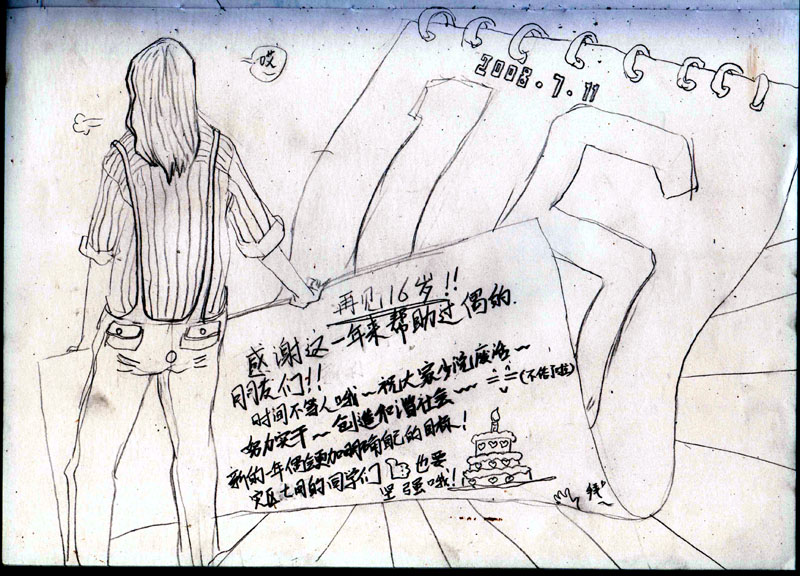 哎
2008.7.11
再见,16岁!!
感谢这一年来帮助过偶的.
朋友们!!
时间不等人哦~祝大家少说废话~
努力实干~创造和谐社会~~
新的一年偶会更加明确自己的目标!
灾区的同学们也要
坚强哦!